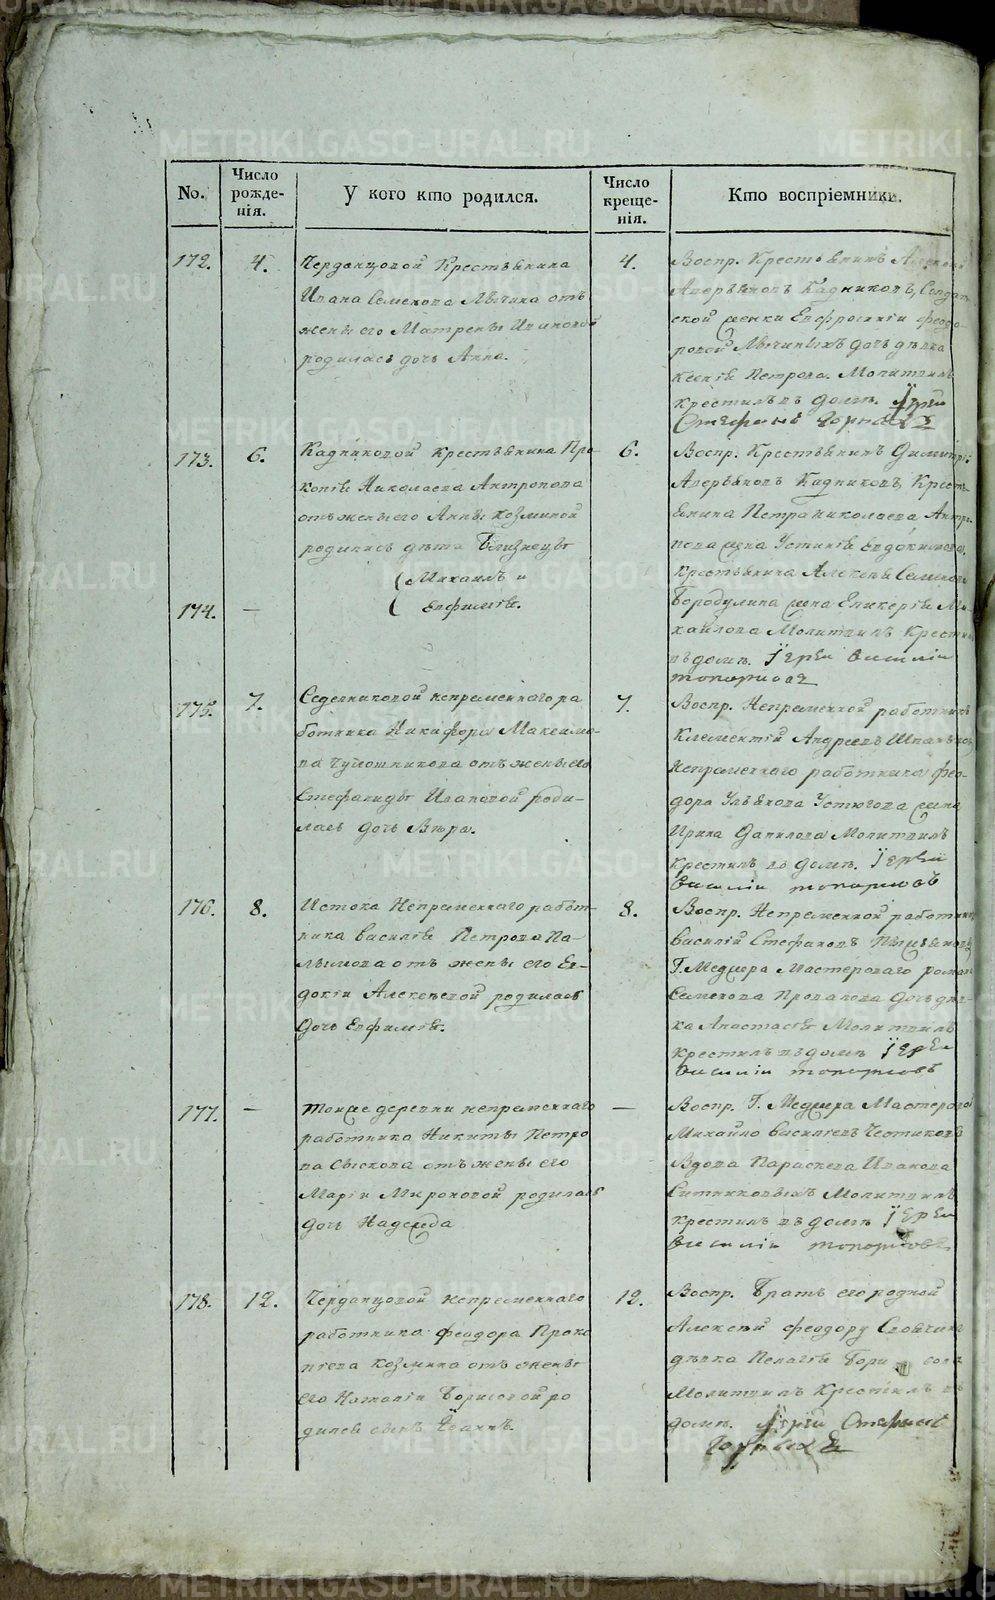 METRIKI.GASO-URAL.RU
No.
Число рожде-нія.
У кого кто родился.
Число креще-нія.
Кто воспріемники.
172.
4.
Черданцовой Крестьянина
Ивана Семенова Лычина отъ
жены его Матрены Ивановой
родилась дочь Анна.
4.
Воспр. Крестьянинъ Алексей
Аверьяновъ Кадниковъ, Солдат
ской женки Евфросиніи Феодо
ровой Лычиныхъ дочь дѣвка
Ксенія Петрова. Молитвилъ
крестилъ въ домѣ. Іерей
Стефанъ Горныхъ
173.
6.
Кадниковой крестьянина Про
копія Николаева Антропова
отъ жены его Анны Козминой
родились дѣти Близнецы
Михаилъ и
Евфимія.
174.
—
6.
Воспр. Крестьянинъ Димитрій
Аверьяновъ Кадниковъ, Кресть
янина Петра Николаева Антро
пова жена Устинія Евдокимова,
крестьянина Алексея Семенова
Бородулина жена Гликерія Ми
хайлова Молитвилъ Крестилъ
въ домѣ. Іерей Василій
Топорковъ
175.
7.
Седельниковой непременнаго ра
ботника Никифора Максимо
ва Чумошникова отъ жены его
Стефаниды Ивановой роди-
лась дочь Вѣра.
7.
Воспр. Непременной работникъ
Клементій Андреевъ
Непременнаго работника Фео-
дора Ульянова Устюгова жена
Ирина Данилова Молитвилъ
крестилъ въ домѣ. Іерей
Василій Топорковъ
176.
8.
Истока Непременнаго работ-
ника Василія Петрова Па-
лымова отъ жены его Ев-
докіи Алексѣевой родилась
дочь Евфимія.
8.
Воспр. Непременной работникъ
Василій Стефановъ
Г. Межера Мастероваго Роман
Семенова Провалова дочь дѣв-
ка Анастасія Молитвилъ
крестилъ въ домѣ Іерей
Василій Топорковъ
177.
—
Тойже деревни непременнаго
работника Никиты Петро
ва Сыскова отъ жены его
Маріи Мироновой родилась
дочь Надежда
—
Воспр. Г. Межера Мастеровой
Михайло Васильевъ Чистяковъ
Вдова Параскева Иванова
Ситниковыхъ Молитвилъ
крестилъ въ домѣ Іерей
Василій Топорковъ
178.
12.
Черданцовой непременнаго
работника Феодора Проко
піева Козмина отъ жены
его Наталіи Борисовой ро
дился сынъ Іоаннъ.
12.
Воспр. Братъ его родной
Алексѣй Феодору
дѣвка Пелагія Бори сова
Молитвилъ Крестилъ въ
домѣ. Іерей Стефанъ
Горныхъ